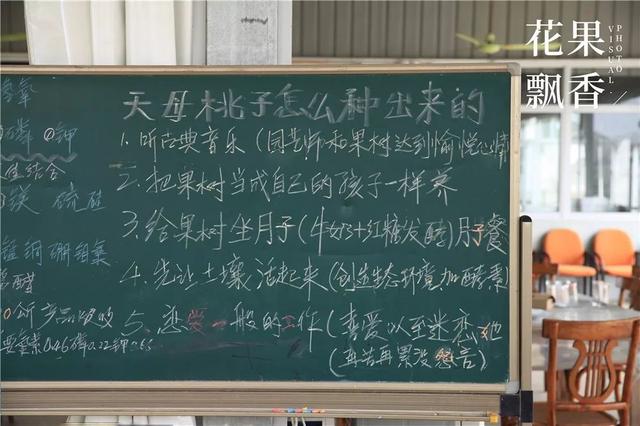 花果
飘香
VISUAL
PHOTO
天母桃子怎么种出来的
1. 听古典音乐（园艺师和果树达到愉悦心情
2. 把果树当成自己的孩子一样养
3. 给果树坐月子（牛奶+红糖发酵）月子餐
4. 先让土壤活起来（创造生态环境，加酵素）
5. 恋爱一般的工作（喜爱以至迷恋他
（再苦再累没怨言）
氧
磷 钾
镁 硫 硅
铜 硼 钼 氯
醋